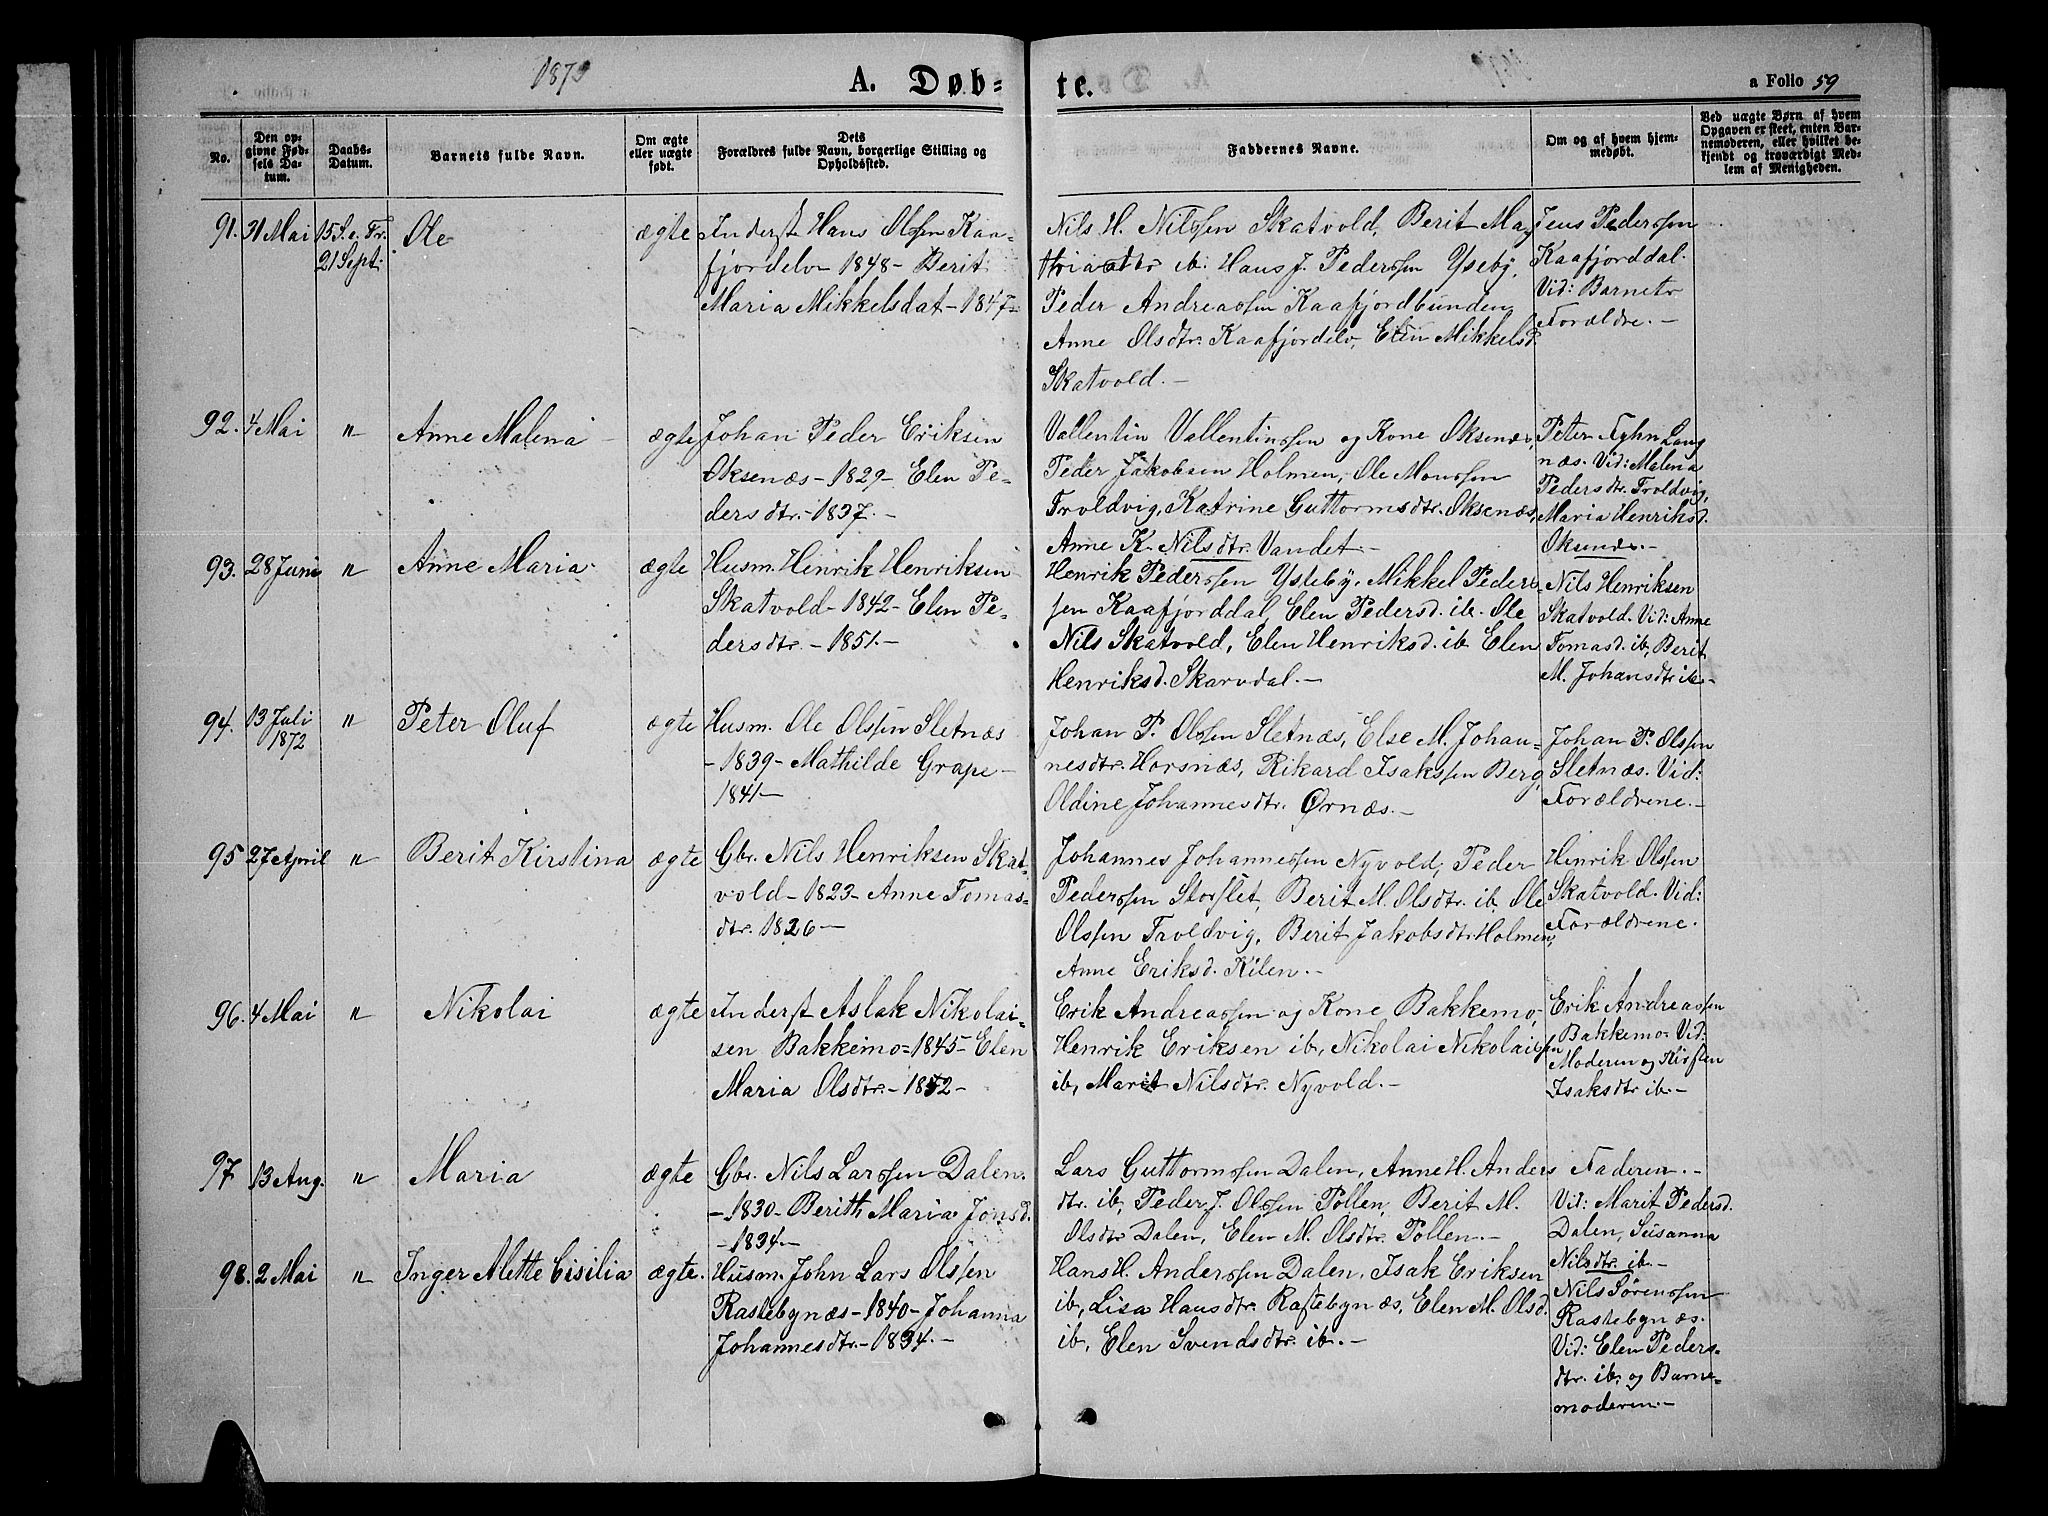 1873
A. Døb-
te.
a Folio 59
No.
Den op-
givne Fød-
sels Da-
tum.
Daabs-
Datum.
Barnets fulde Navn.
Om ægte
eller uægte
født.
Dets
Forældres fulde Navn, borgerlige Stilling og
Opholdssted.
Faddernes Navne.
Om og af hvem hjem-
medøbt.
Ved uægte Børn af hvem
Opgaven er skeet, enten Bar-
nemoderen, eller hvilket be-
kjendt og troværdigt Med-
lem af Menigheden.
91. 31 Mai
15 S. e. Tr.
21 Sept.
Ole
ægte
Inderst Hans Olssen Kaa-
fjordelv - 1848 - Berit
Maria Mikkelsdat - 1847 -
Nils H. Nilssen Skatvold, Berit Ma-
thiasdtr ib. Hans J. Pederssen Ysteby,
Peder Andreassen Kaafjordbunden
Anne Olsdtr. Kaafjordelv, Elen Mikkelsd.
Skatvold. -
Jens Pederssen
Kaafjorddal.
Vid: Barnets
Forældre. -
92. 4 Mai
"
Anne Malena
ægte
Johan Peder Eriksen
Oksenæs - 1829 - Elen Pe-
dersdtr. - 1837. -
Vallentin Vallentinssen og Kone Oksenæs,
Peder Jakobsen Holmen, Ole Monssen
Troldvig, Katrine Guttormsdtr. Oksenæs,
Anne K. Nilsdtr. Vandet. -
Peter Fyhn Lang
næs. Vid: Malena
Pedersdtr. Troldvig,
Maria Henriksd.
Oksenæs. -
93. 28 Juni
"
Anne Maria
ægte
Husm. Hinrik Henriksen
Skatvold - 1842 - Elen Pe-
dersdtr. - 1851. -
Henrik Pederssen Ysteby, Mikkel Peders-
sen Kaafjorddal, Elen Pedersd. ib. Ole
Nils Skatvold, Elen Henriksd. ib. Elen
Henriksd. Skarvdal. -
Nils Henriksen
Skatvold. Vid: Anne
Tomasd. ib, Berit
M. Johansdtr ib. -
94. 13 Juli
1872
"
Peter Oluf
ægte
Husm. Ole Olssen Sletnæs
- 1839 - Mathilde Grape -
1841 -
Johan P. Olssen Sletnæs, Else M. Johan-
nesdtr. Horsnæs, Rikard Isakssen Berg,
Oldine Johannesdtr. Ørnæs. -
Johan P. Olssen
Sletnæs. Vid:
Forældrene. -
95 27 April
"
Berit Kirstina
ægte
Gbr. Nils Henriksen Skat-
vold - 1823 - Anne Tomas-
dtr. 1826 -
Johannes Johannessen Nyvold, Peder
Pederssen Storslet, Berit M. Olsdtr. ib. Ole
Olssen Troldvig, Berit Jakobsdtr. Holmen,
Anne Eriksd. Kilen. -
Henrik Olssen
Skatvold. Vid:
Forældrene.
96. 4 Mai
"
Nikolai
ægte
Inderst Aslak Nikolai-
sen Bakkemo - 1845 - Elen
Maria Olsdtr. - 1852 -
Erik Andreassen og Kone Bakkemo,
Henrik Eriksen ib, Nikolai Nikolaissen
ib, Marit Nilsdtr. Nyvold. -
Erik Andreassen
Bakkemo. Vid:
Moderen og Kirsten
Isaksdtr ib. -
97 13 Aug.
"
Maria
ægte
Gbr. Nils Larssen Dalen.
- 1830 - Berith Maria Jonsd.
- 1834 -
Lars Guttormssen Dalen, Anne H. Anders
dtr. ib, Peder J. Olssen Pollen, Berit M.
Olsdtr Dalen, Elen M. Olsdtr. Pollen. -
Faderen. -
Vid: Marit Pedersd.
Dalen, Susanna
Nilsdtr. ib. -
98. 2 Mai
"
Inger Mette Cisilia
ægte.
Husm. John Lars Olssen
Rastebynæs - 1840 - Johanna
Johannesdtr. - 1834. -
Hans H. Anderssen Dalen, Isak Eriksen
ib, Lisa Hansdtr. Rastebynæs, Elen M. Olsd.
ib, Elen Svendsdtr. ib. -
Nils Sörenssen
Rastebynæs.
Vid: Elen Peders-
dtr. ib. og Barne-
moderen. -